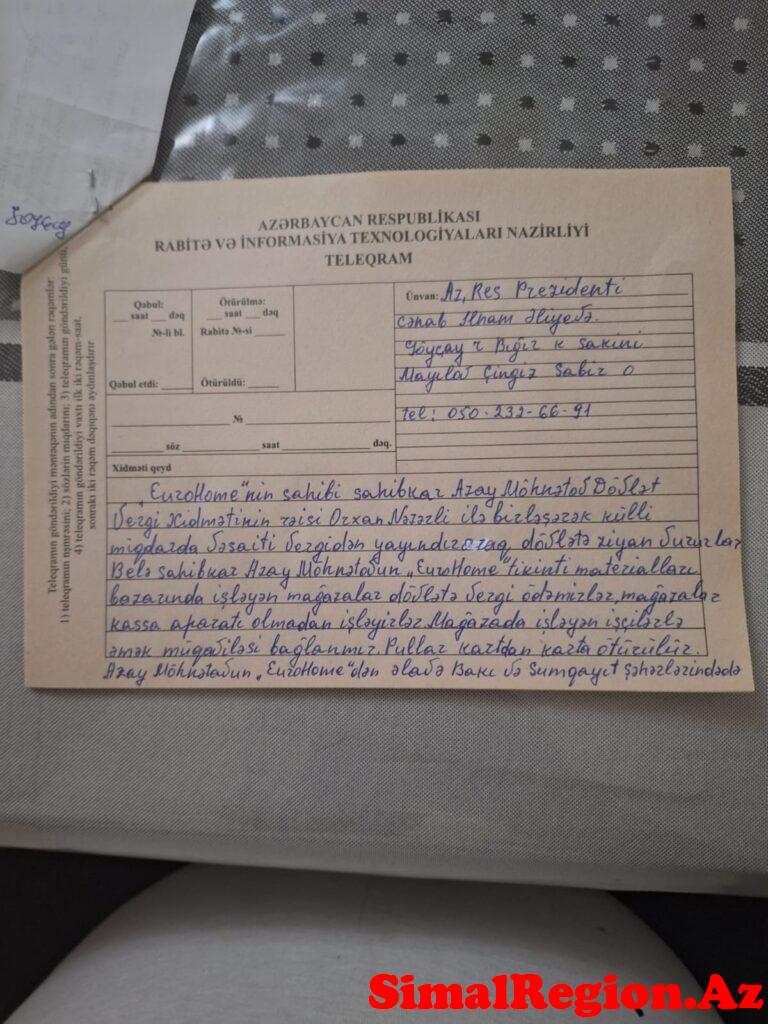 AZƏRBAYCAN RESPUBLİKASI
RABİTƏ VƏ İNFORMASİYA TEXNOLOGİYALARI NAZİRLİYİ
TELEQRAM
Teleqramın göndərildiyi məntəqənin adından sonra gələn rəqəmlər:
1) teleqramın nömrəsini; 2) sözlərin miqdarını; 3) teleqramın göndərildiyi günü,
4) teleqramın göndərildiyi vaxtı ilk iki rəqəm-saat,
sonrakı iki rəqəm dəqiqəni aydınlaşdırır
Qəbul:
___ saat ___ dəq
№-li bl.
Qəbul etdi: _____
Ötürülmə:
___ saat ___ dəq
Rabitə №-si _____
Ötürüldü: _____
№
söz saat dəq.
Xidməti qeyd
Ünvan: Az, Res Prezidenti
cənab İlham Əliyevə.
Göyçay r Bığır k sakini
Mayılov Çingiz Sabir o
tel: 050-232-66-91
„EuroHome“nin sahibi sahibkar Azay Möhnətov Dövlət
Vergi Xidmətinin rəisi Orxan Nəzərli ilə birləşərək külli
miqdarda vəsaiti vergidən yayındıraraq dövlətə ziyan vururlar
Belə sahibkar Azay Möhnətovun „EuroHome“ tikinti materialları
bazarında işləyən mağazalar dövlətə vergi ödəmirlər, mağazalar
kassa aparatı olmadan işləyirlər. Mağazada işləyən işçilərlə
əmək müqaviləsi bağlanmır. Pullar kartdan karta ötürülür.
Azay Möhnətovun „EuroHome“dən əlavə Bakı və Sumqayıt şəhərlərindədə
SimalRegion.Az